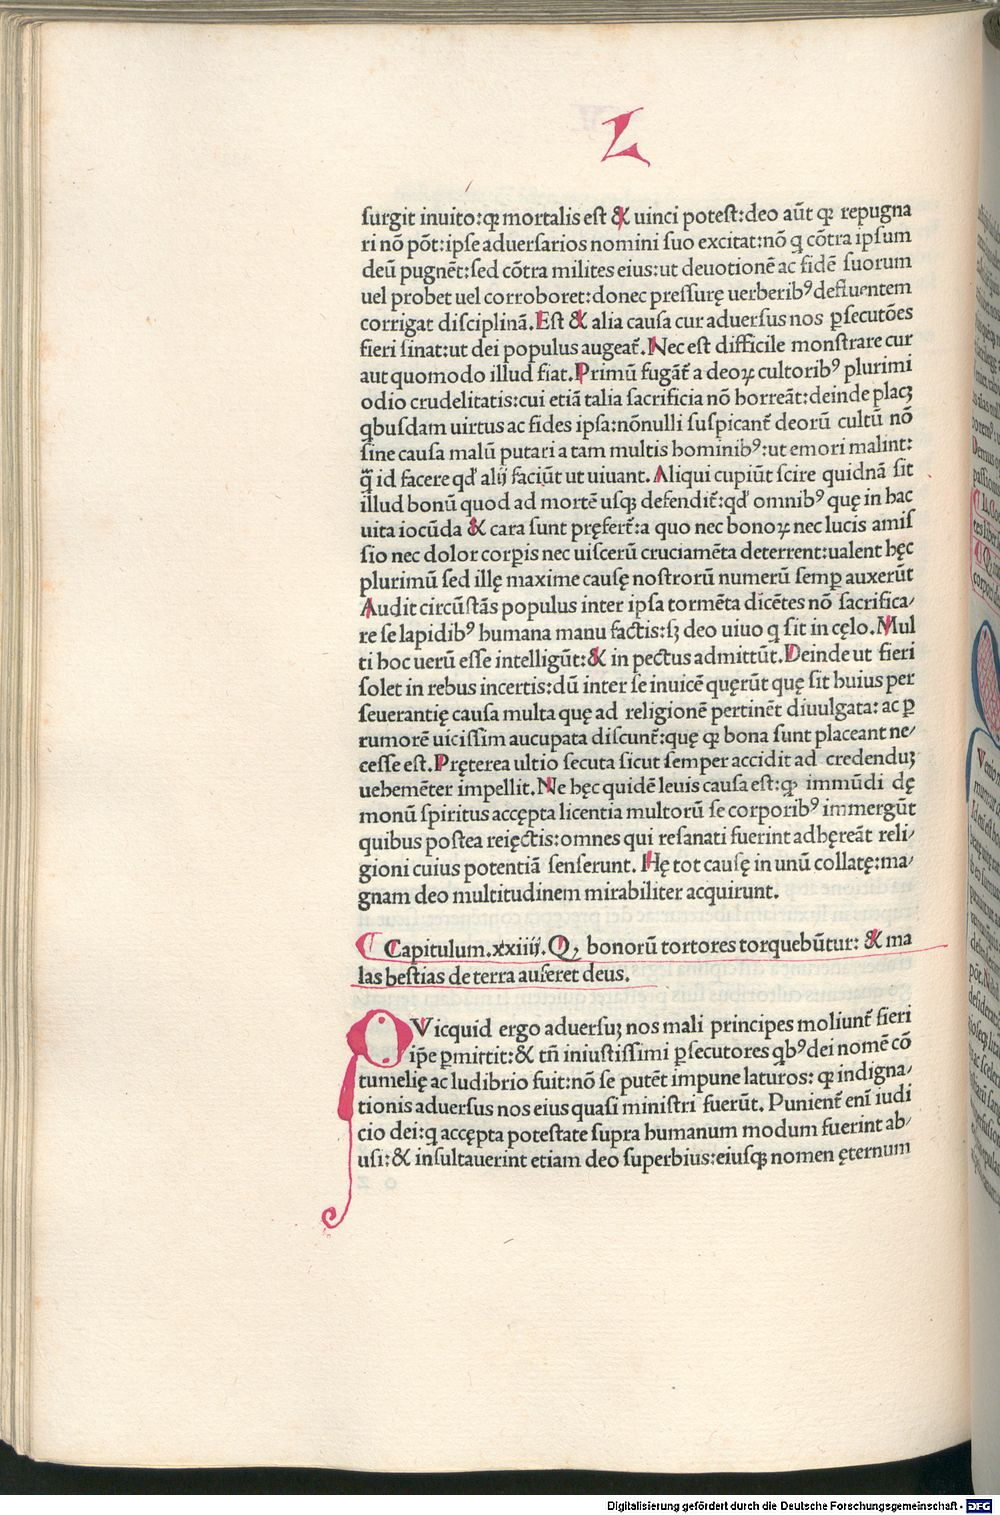 L
surgit inuito:qꝛ mortalis est & uinci potest:deo aūt qꝛ repugna
ri nō pōt:ipse aduersarios nomini suo excitat:nō q cōtra ipsum
deū pugnēt:sed cōtra milites eius:ut deuotionē ac fidē suorum
uel probet uel corroboret:donec pressurę uerberibꝰ defluentem
corrigat disciplinā.Est & alia causa cur aduersus nos ꝑsecutōes
fieri sinat:ut dei populus augeat̄.Nec est difficile monstrare cur
aut quomodo illud fiat.Primū fugāt̄ a deoꝝ cultoribꝰ plurimi
odio crudelitatis:cui etiā talia sacrificia nō horreāt:deinde placꝫ
qbusdam uirtus ac fides ipsa:nōnulli suspicant̄ deorū cultū nō
sine causa malū putari a tam multis hominibꝰ:ut emori malint:
q̃ id facere qd̕ alij faciūt ut uiuant.Aliqui cupiūt scire quidnā sit
illud bonū quod ad mortē usqꝫ defendit̄:qd̕ omnibꝰ quę in hac
uita iocūda & cara sunt pręfert̄:a quo nec bonoꝝ nec lucis amis
sio nec dolor corꝑis nec uiscerū cruciamēta deterrent:ualent hęc
plurimū sed illę maxime causę nostrorū numerū semꝑ auxerūt
Audit circūstās populus inter ipsa tormēta dicētes nō sacrifica⸗
re se lapidibꝰ humana manu factis:sꝫ deo uiuo q sit in cęlo.Mul
ti hoc uerū esse intelligūt:& in pectus admittūt.Deinde ut fieri
solet in rebus incertis:dū inter se inuicē quęrūt quę sit huius per
seuerantię causa multa quę ad religionē pertinēt diuulgata: ac ꝑ
rumorē uicissim aucupata discunt̄:quę qꝛ bona sunt placeant ne⸗
cesse est.Pręterea ultio secuta sicut semper accidit ad credenduꝫ
uehemēter impellit.Ne hęc quidē leuis causa est:qꝛ immūdi dę
monū spiritus accępta licentia multorū se corporibꝰ immergūt
quibus postea reięctis:omnes qui resanati fuerint adhęreāt reli⸗
gioni cuius potentiā senserunt. Hę tot causę in unū collatę:ma⸗
gnam deo multitudinem mirabiliter acquirunt.
Capitulum.xxiiij.Qꝛ bonorū tortores torquebūtur: & ma
las bestias de terra auferet deus.
QVicquid ergo aduersuꝫ nos mali principes moliunt̄ fieri
ip̄e ꝑmittit:& tn̄ iniustissimi ꝑsecutores qbꝰ dei nomē cō
tumelię ac ludibrio fuit:nō se putēt impune laturos: qꝛ indigna⸗
tionis aduersus nos eius quasi ministri fuerūt.Punient̄ enī iudi
cio dei:q accępta potestate supra humanum modum fuerint ab⸗
usi:& insultauerint etiam deo superbius:eiusqꝫ nomen ęternum
Digitalisierung gefördert durch die Deutsche Forschungsgemeinschaft - DFG